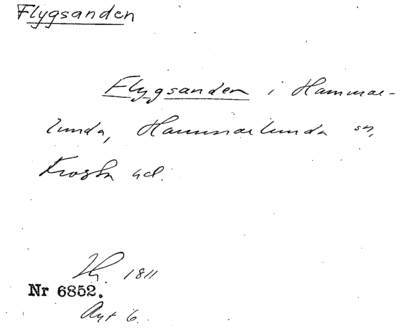 Flygsanden
Flygsanden i Hammar-
lunda, Hammarlunda sn,
Frosta hd.
1811
Nr 6852.
Akt 6.